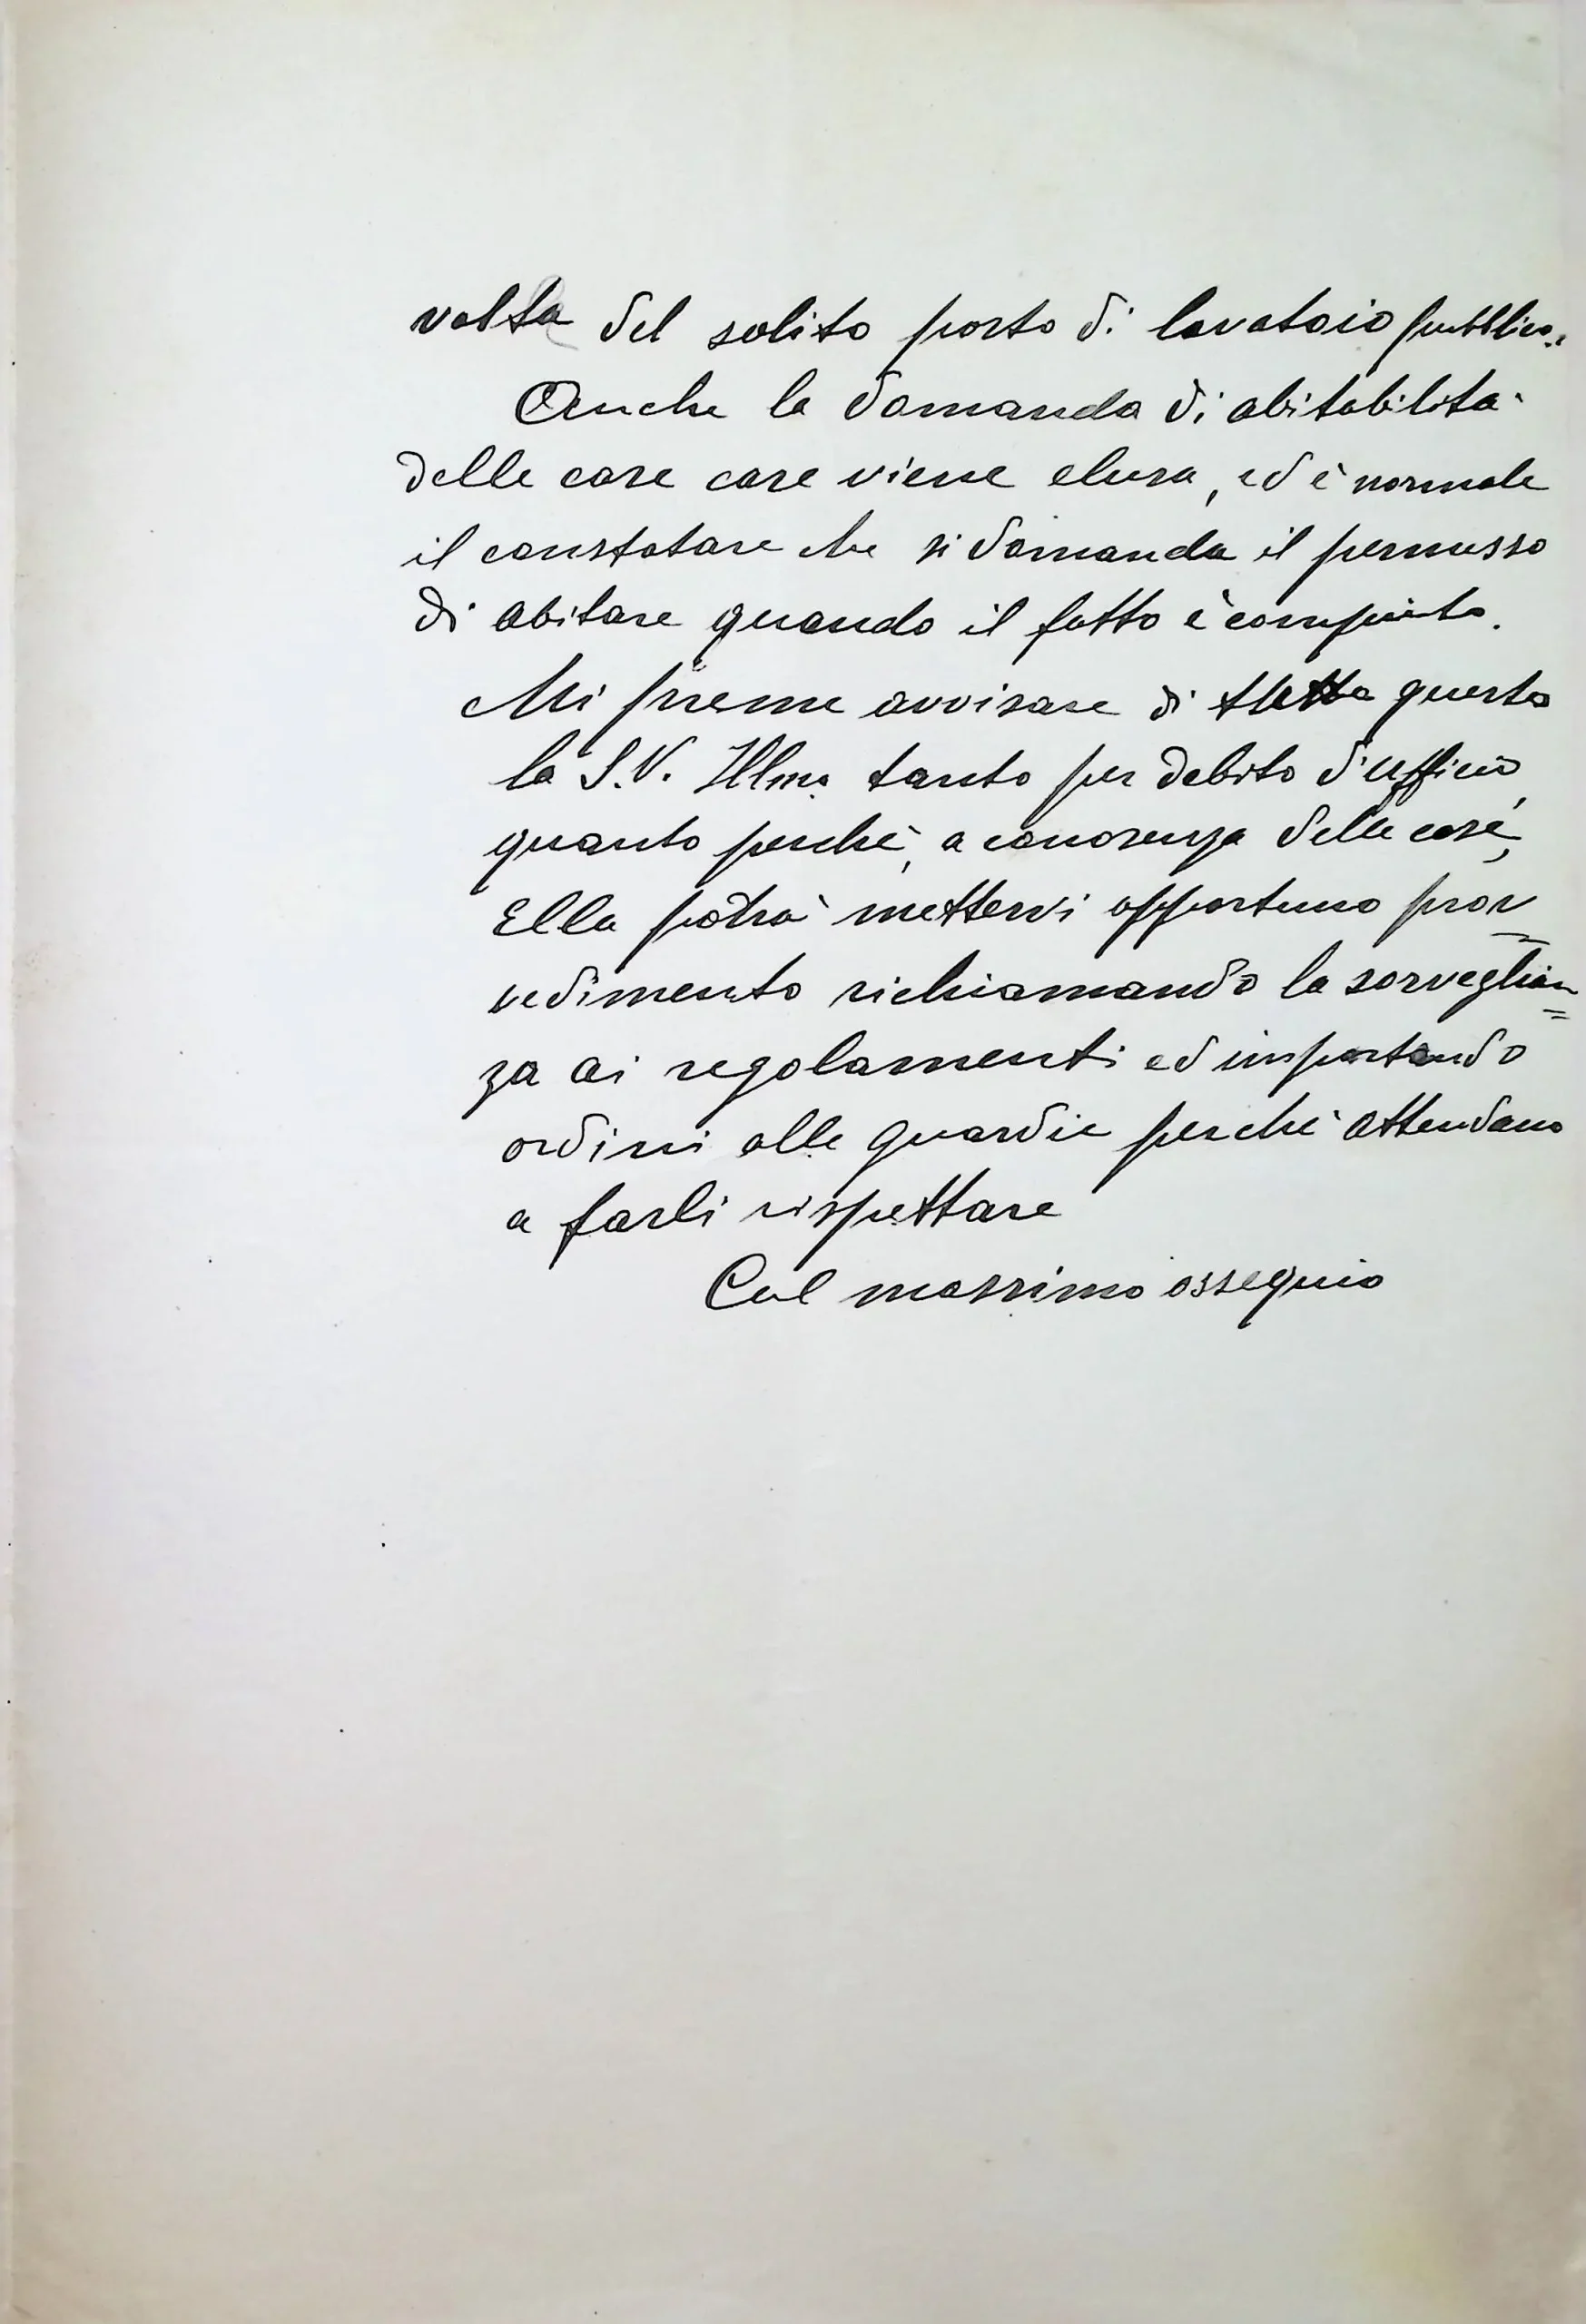 volta del solito posto di lavatoio pubblico.
Anche la domanda di abitabilità
delle case case viene elusa, ed è normale
il constatare che si domanda il permesso
di abitare quando il fatto è compiuto.
Mi preme avvisare di tutto questo
la S.V. Illma tanto per debito d'ufficio,
quanto perchè, a conoscenza delle cose,
Ella potrà mettervi opportuno prov=
vedimento richiamando la sorveglian=
za ai regolamenti ed impartendo
ordini alle guardie perchè attendano
a farli rispettare
Col massimo ossequio